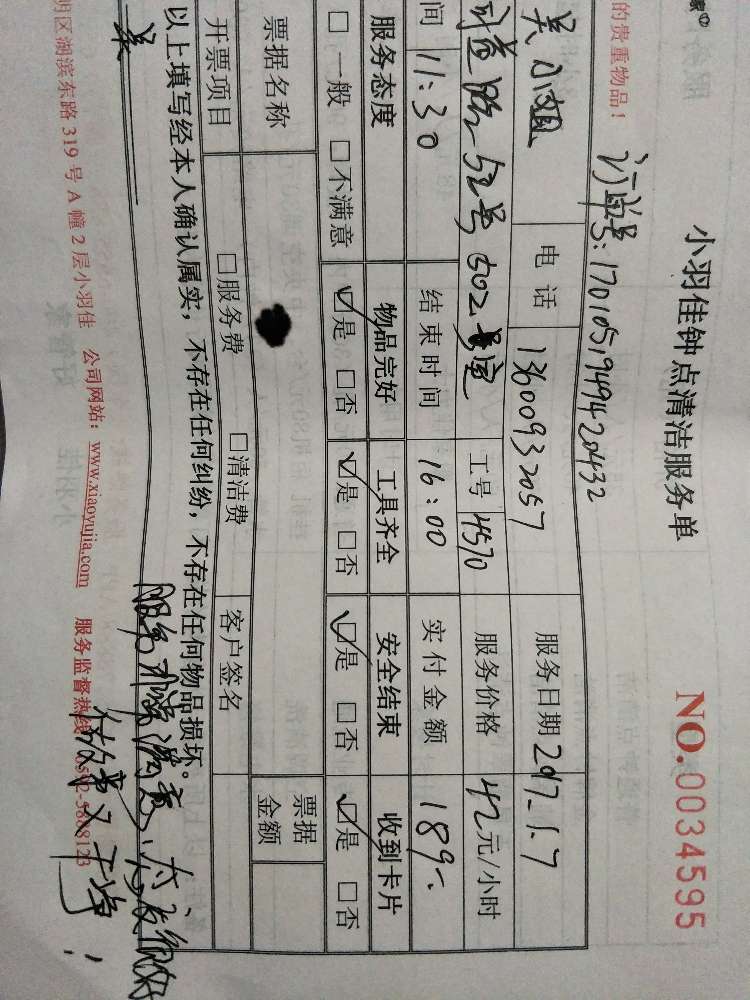 小羽佳钟点清洁服务单
NO.0034595
的贵重物品！
订单号：170105194942 0432
吴小姐 电话 13600932057 服务日期 2017-1.7
52号502号室 工号 4570 服务价格 42元/小时
间 11:30 结束时间 16:00 实付金额 189-
服务态度 物品完好 工具齐全 安全结束 收到卡片
□一般 □不满意 ☑是 □否 ☑是 □否 ☑是 □否 ☑是 □否
票据名称 票据金额
开票项目 □服务费 □清洁费 客户签名
以上填写经本人确认属实，不存在任何纠纷，不存在任何物品损坏。
服务非常满意，态度很好
做事又干净！
明区湖滨东路319号A幢2层小羽佳 公司网站：www.xiaoyujia.com 服务监督热线：0592-5888123